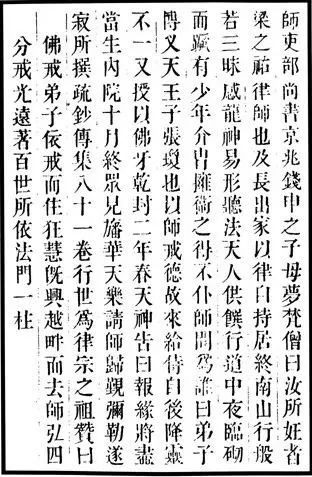 師吏部尚書京兆錢申之子母夢梵僧曰汝所姙者
梁之祐律師也及長出家以律自持居終南山行般
若三昧感龍神易形聽法天人供饌行道中夜臨砌
而蹶有少年介冑擁衛之得不仆師問為誰曰弟子
博叉天王子張瓊也以師戒德故來給侍自後降靈
不一又授以佛牙乾封二年春天神告曰報緣將盡
當生內院十月終眾見旛華天樂請師歸覲彌勒遂
寂所撰疏鈔傳集八十一卷行世爲律宗之祖贊曰
佛戒弟子依戒而住狂慧旣興越畔而去師弘四
分戒光遠著百世所依法門一柱